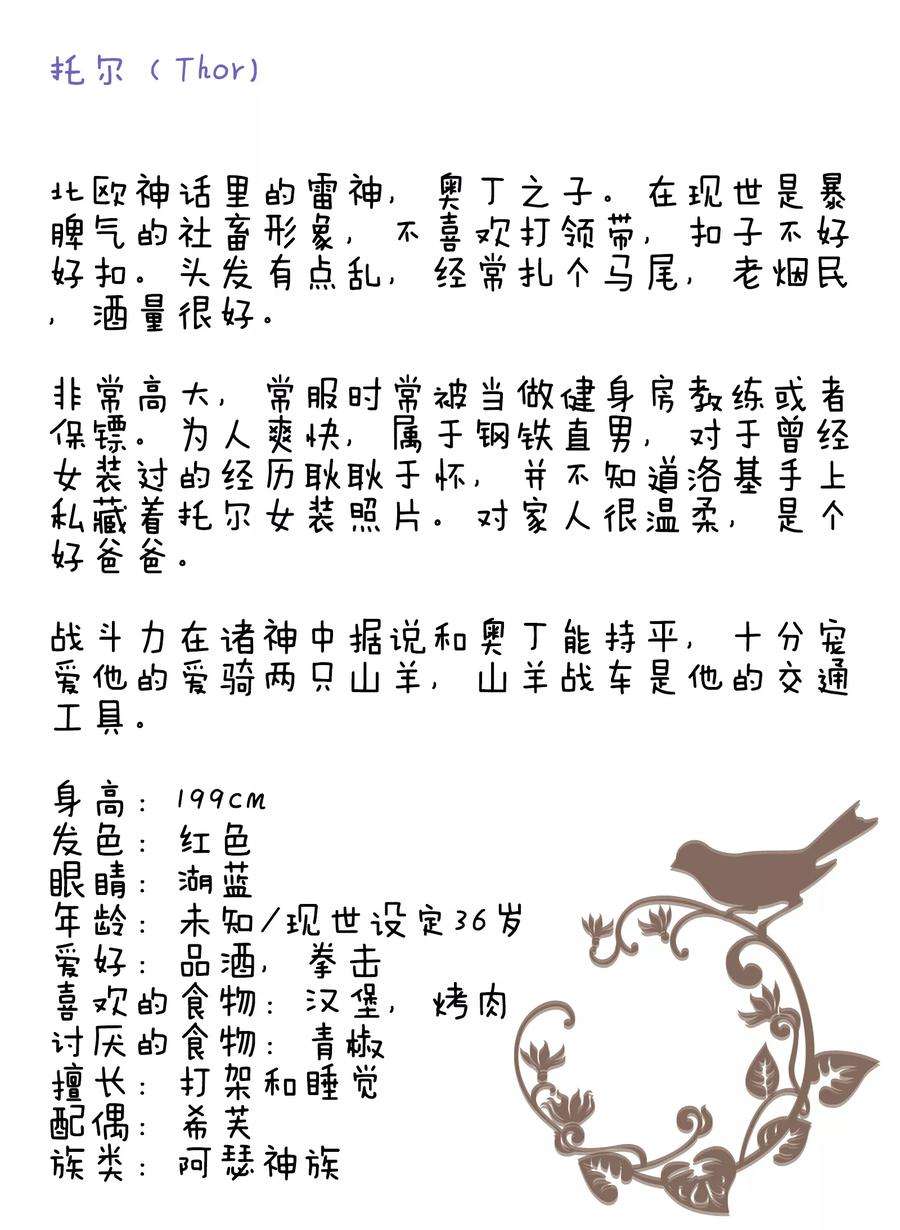 托尔（Thor）
北欧神话里的雷神，奥丁之子。在现世是暴
脾气的社畜形象，不喜欢打领带，扣子不好
好扣。头发有点乱，经常扎个马尾，老烟民
，酒量很好。
非常高大，常服时常被当做健身房教练或者
保镖。为人爽快，属于钢铁直男，对于曾经
女装过的经历耿耿于怀，并不知道洛基手上
私藏着托尔女装照片。对家人很温柔，是个
好爸爸。
战斗力在诸神中据说和奥丁能持平，十分宠
爱他的爱骑两只山羊，山羊战车是他的交通
工具。
身高：199cm
发色：红色
眼睛：湖蓝
年龄：未知/现世设定36岁
爱好：品酒，拳击
喜欢的食物：汉堡，烤肉
讨厌的食物：青椒
擅长：打架和睡觉
配偶：希芙
族类：阿瑟神族